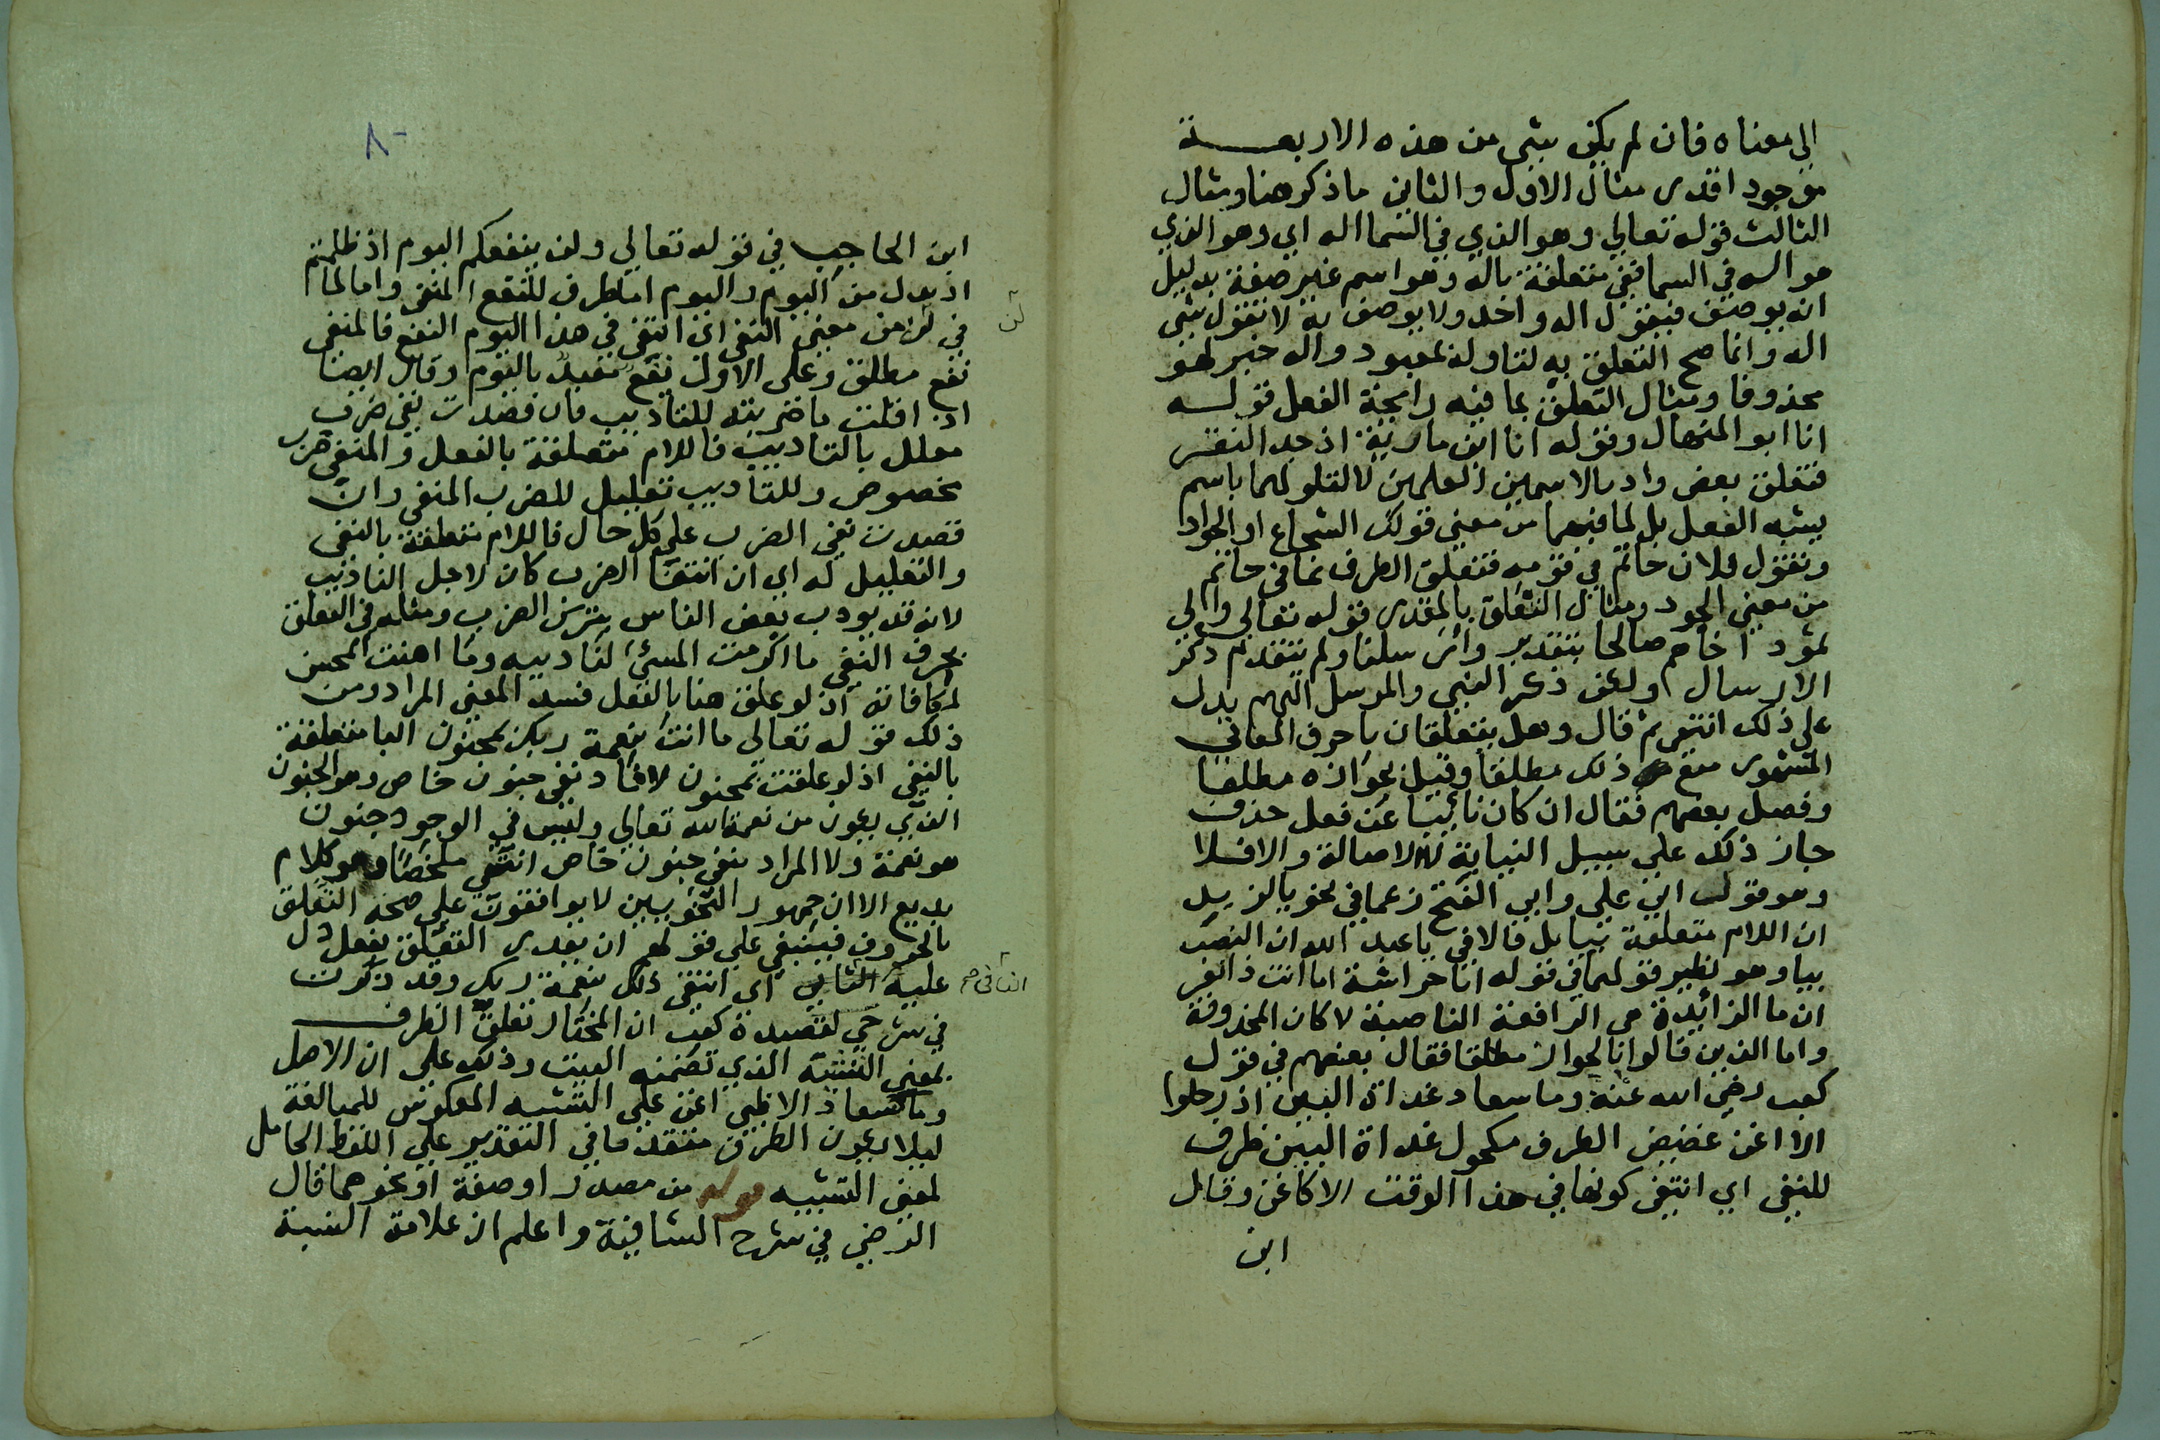 الي معناه فان لم يكن شي من هذه الاربعــة
موجود اقدر مثال الاول والثاني ما ذكر هنا ومثال
الثالث قوله تعالي وهو الذي في السما اله اي وهو الذي
هو اله في السما ففي متعلقة باله وهو اسم غير صفة بدليل
انه يوصف فيقول اله واحد ولا يوصف به لا تقول شي
اله وانما صح التعلق به لتاوله بمعبود واله خبر لهو
محذوفا ومثال التعلق بما فيه رائحة الفعل قولــه
انا ابو المنهال وقوله انا ابن مارية اذ جد النقر
فتعلق بعض واذ بالاسمين العلمين لا لتاولهما باسم
يشبه الفعل بل لما فيهما من معني قولك الشجاع او الجواد
وتقول فلان حاتم في قومه فتعلق الظرف بما في حاتم
من معني الجود ومثال التعلق بالمقدر قوله تعالي والي
ثمود اخاهم صالحا بتقدير وارسلنا ولم يتقدم ذكر
الارسال ولكن ذكر النبي والمرسل اليهم يدل
علي ذلك انتهي ثم قال وهل يتعلقان باحرف المعاني
المشهور منع ذلك مطلقا وقيل بجوازه مطلقا
وفصل بعضهم فقال ان كان نائبا عن فعل حذف
جاز ذلك علي سبيل النيابة لا الاصالة والا فلا
وهو قول ابي علي وابي الفتح زعما في نحو يا لزيد
ان اللام متعلقة بيا بل قالا في يا عبد الله ان النصب
بيا وهو نظير قولهما في قوله ابا خراشة اما انت ذا نفر
ان ما الزائدة هي الرافعة الناصبة لا كان المحذوفة
واما الذين قالوا بالجواز مطلقا فقال بعضهم في قول
كعب رضي الله عنه وما سعاد غداة البين اذ رحلوا
الا اغن غضيض الطرف مكحول غداة البين ظرف
للنفي اي انتفي كونها في هذا الوقت الا كاغن وقال
ابن
٨٠
ابن الحاجب في قوله تعالي ولن ينفعكم اليوم اذ ظلمتم
اذ بدل من اليوم واليوم اما ظرف للنفع المنفي واما لما
لن
في لن من معني النفي اي انتفي في هذا اليوم النفع فالمنفي
نفع مطلق وعلي الاول نفع مقيد باليوم وقال ايضا
اذا قلت ما ضربته للتاديب فان قصدت نفي ضرب
معلل بالتاديب فاللام متعلقة بالفعل والمنفي ضرب
مخصوص وللتاديب تعليل للضرب المنفي وان
قصدت نفي الضرب علي كل حال فاللام متعلقة بالنفي
والتعليل له اي ان انتفا الضرب كان لاجل التاديب
لانه قد يودب بعض الناس بترك الضرب ومثله في التعلق
بحرف النفي ما اكرمت المسئ لتاديبه وما اهنت المحسن
لمكافاته اذ لو علق هنا بالفعل فسد المعني المراد ومن
ذلك قوله تعالي ما انت بنعمة ربك بمجنون البا متعلقة
بالنفي اذ لو علقت بمجنون لافاد نفي جنون خاص وهو الجنون
الذي يكون من نعمة الله تعالي وليس في الوجود جنون
هو نعمة ولا المراد نفي جنون خاص انتهي ملخصا وهو كلام
بديع الا ان جمهور النحويين لا يوافقون علي صحة التعلق
بالحروف فينبغي علي قولهم ان يقدر التعلق بفعل دل
عليه الثاني اي انتفي ذلك بنعمة ربك وقد ذكرت
النافي صح
في شرحي لقصيدة كعب ان المختار تعلق الظرف
بمعني التشبيه الذي تضمنه البيت وذلك علي ان الاصل
وما سعاد الا ظبي اغن علي التشبيه المعكوس للمبالغة
ليلا يكون الظرف متقدما في التقدير علي اللفظ الحامل
لمعني التشبيه قوله من مصدر او صفة او نحوهما قال
الرضي في شرح الشافية واعلم ان علامة النسبة